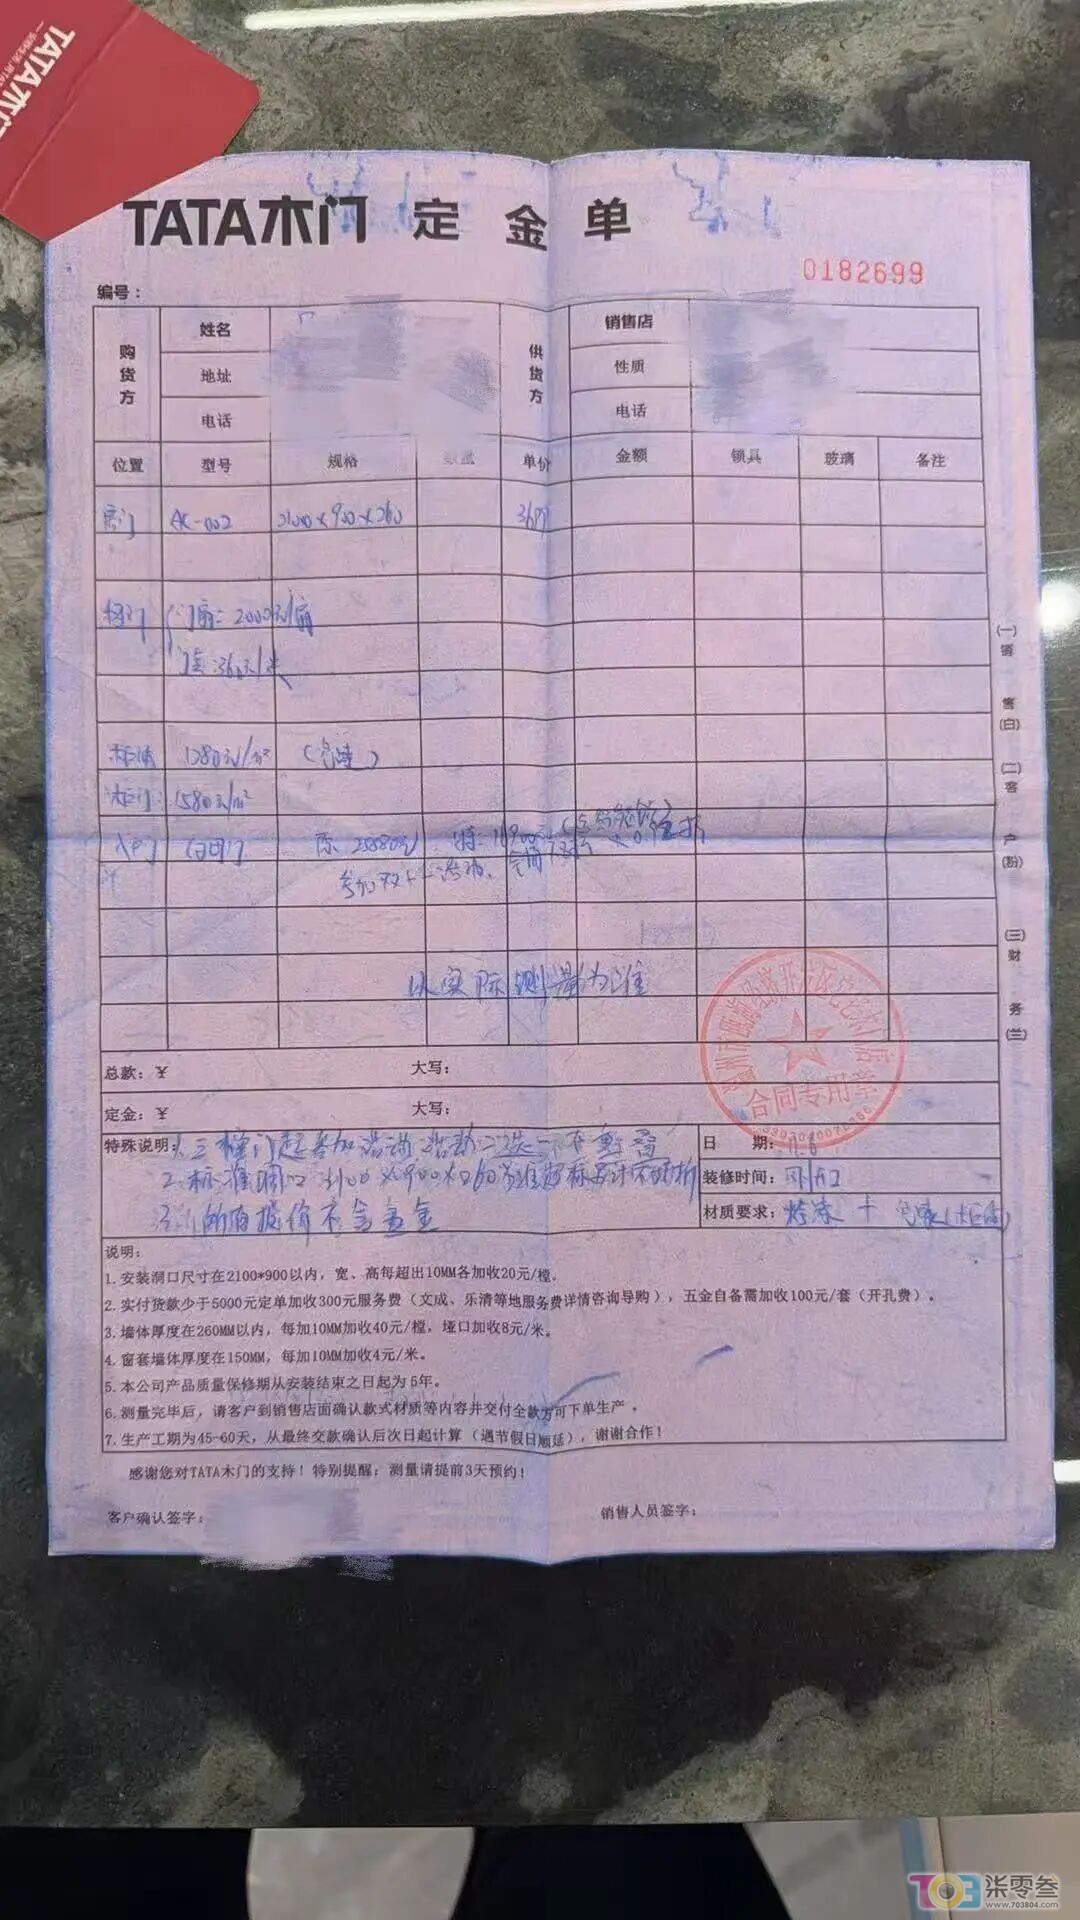 TATA木门
TATA木门 定金单
0182699
编号：
购货方 姓名 供货方 销售店
地址 性质
电话 电话
位置 型号 规格 单价 金额 锁具 玻璃 备注
房门 AK-002 2100×900×260
门扇：2000元/扇
360元/米
1380元/m²
柜门 1580元/m²
入户门
参加双十一活动
以实际测量为准
总款：¥ 大写：
定金：¥ 大写：
特殊说明：1. 三樘门起参加活动 活动二选一 不重叠
2. 标准洞口 2100×900×260为准超标另计不打折
3. 所有报价不含五金
日 期： 11.6
装修时间：
材质要求：烤漆 +
合同专用章
说明：
1. 安装洞口尺寸在2100*900以内，宽、高每超出10MM各加收20元/樘。
2. 实付货款少于5000元定单加收300元服务费（文成、乐清等地服务费详情咨询导购），五金自备需加收100元/套（开孔费）。
3. 墙体厚度在260MM以内，每加10MM加收40元/樘，垭口加收8元/米。
4. 窗套墙体厚度在150MM，每加10MM加收4元/米。
5. 本公司产品质量保修期从安装结束之日起为5年。
6. 测量完毕后，请客户到销售店面确认款式材质等内容并交付全款方可下单生产。
7. 生产工期为45-60天，从最终交款确认后次日起计算（遇节假日顺延），谢谢合作！
感谢您对TATA木门的支持！特别提醒：测量请提前3天预约！
客户确认签字： 销售人员签字：
(一)销售(白)(二)客户(粉)(三)财务(兰)
703 柒零叁
www.703804.com